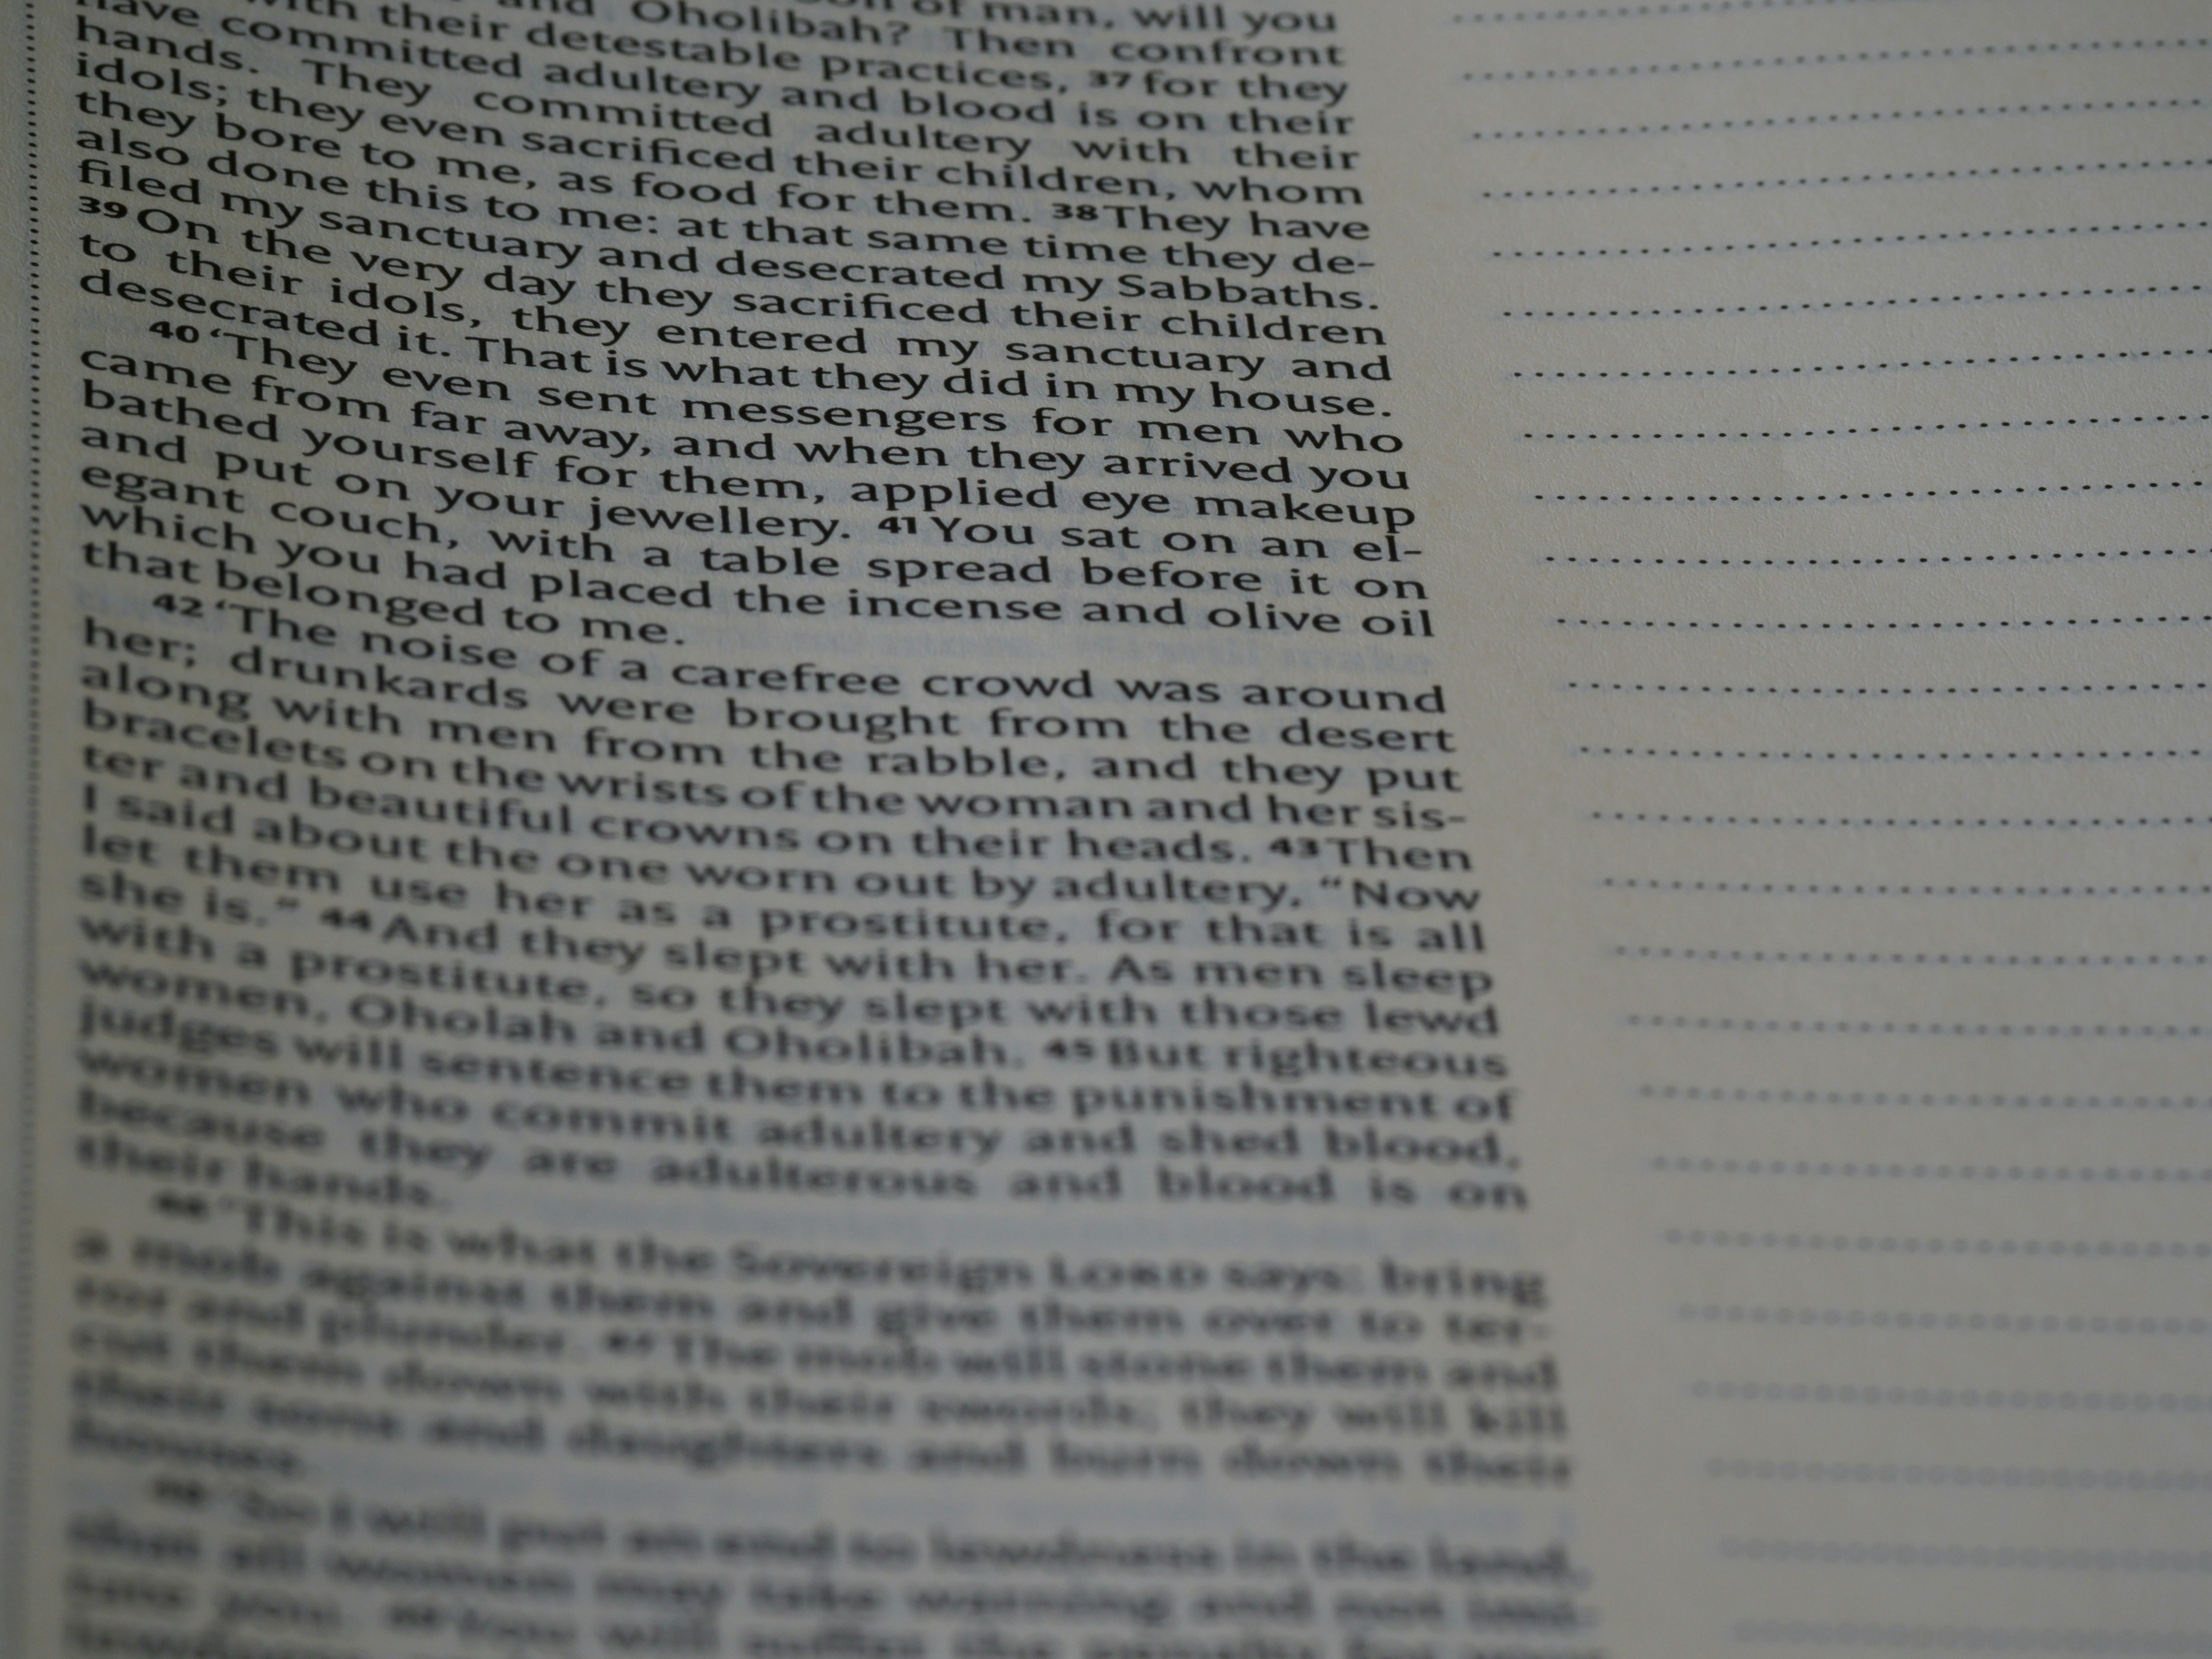 and Oholibah? Then confront
with their detestable practices, 37 for they
have committed adultery and blood is on their
hands. They committed adultery with their
idols; they even sacrificed their children, whom
they bore to me, as food for them. 38 They have
also done this to me: at that same time they de-
filed my sanctuary and desecrated my Sabbaths.
39 On the very day they sacrificed their children
to their idols, they entered my sanctuary and
desecrated it. That is what they did in my house.
40 ‘They even sent messengers for men who
came from far away, and when they arrived you
bathed yourself for them, applied eye makeup
and put on your jewellery. 41 You sat on an el-
egant couch, with a table spread before it on
which you had placed the incense and olive oil
that belonged to me.
42 ‘The noise of a carefree crowd was around
her; drunkards were brought from the desert
along with men from the rabble, and they put
bracelets on the wrists of the woman and her sis-
ter and beautiful crowns on their heads. 43 Then
I said about the one worn out by adultery, “Now
let them use her as a prostitute, for that is all
she is.” 44 And they slept with her. As men sleep
with a prostitute, so they slept with those lewd
women, Oholah and Oholibah. 45 But righteous
judges will sentence them to the punishment of
women who commit adultery and shed blood,
because they are adulterous and blood is on
their hands.
46 ‘This is what the Sovereign LORD says: bring
a mob against them and give them over to ter-
ror and plunder. 47 The mob will stone them and
cut them down with their swords; they will kill
their sons and daughters and burn down their
houses.
48 ‘So I will put an end to lewdness in the land,
that all women may take warning and not imi-